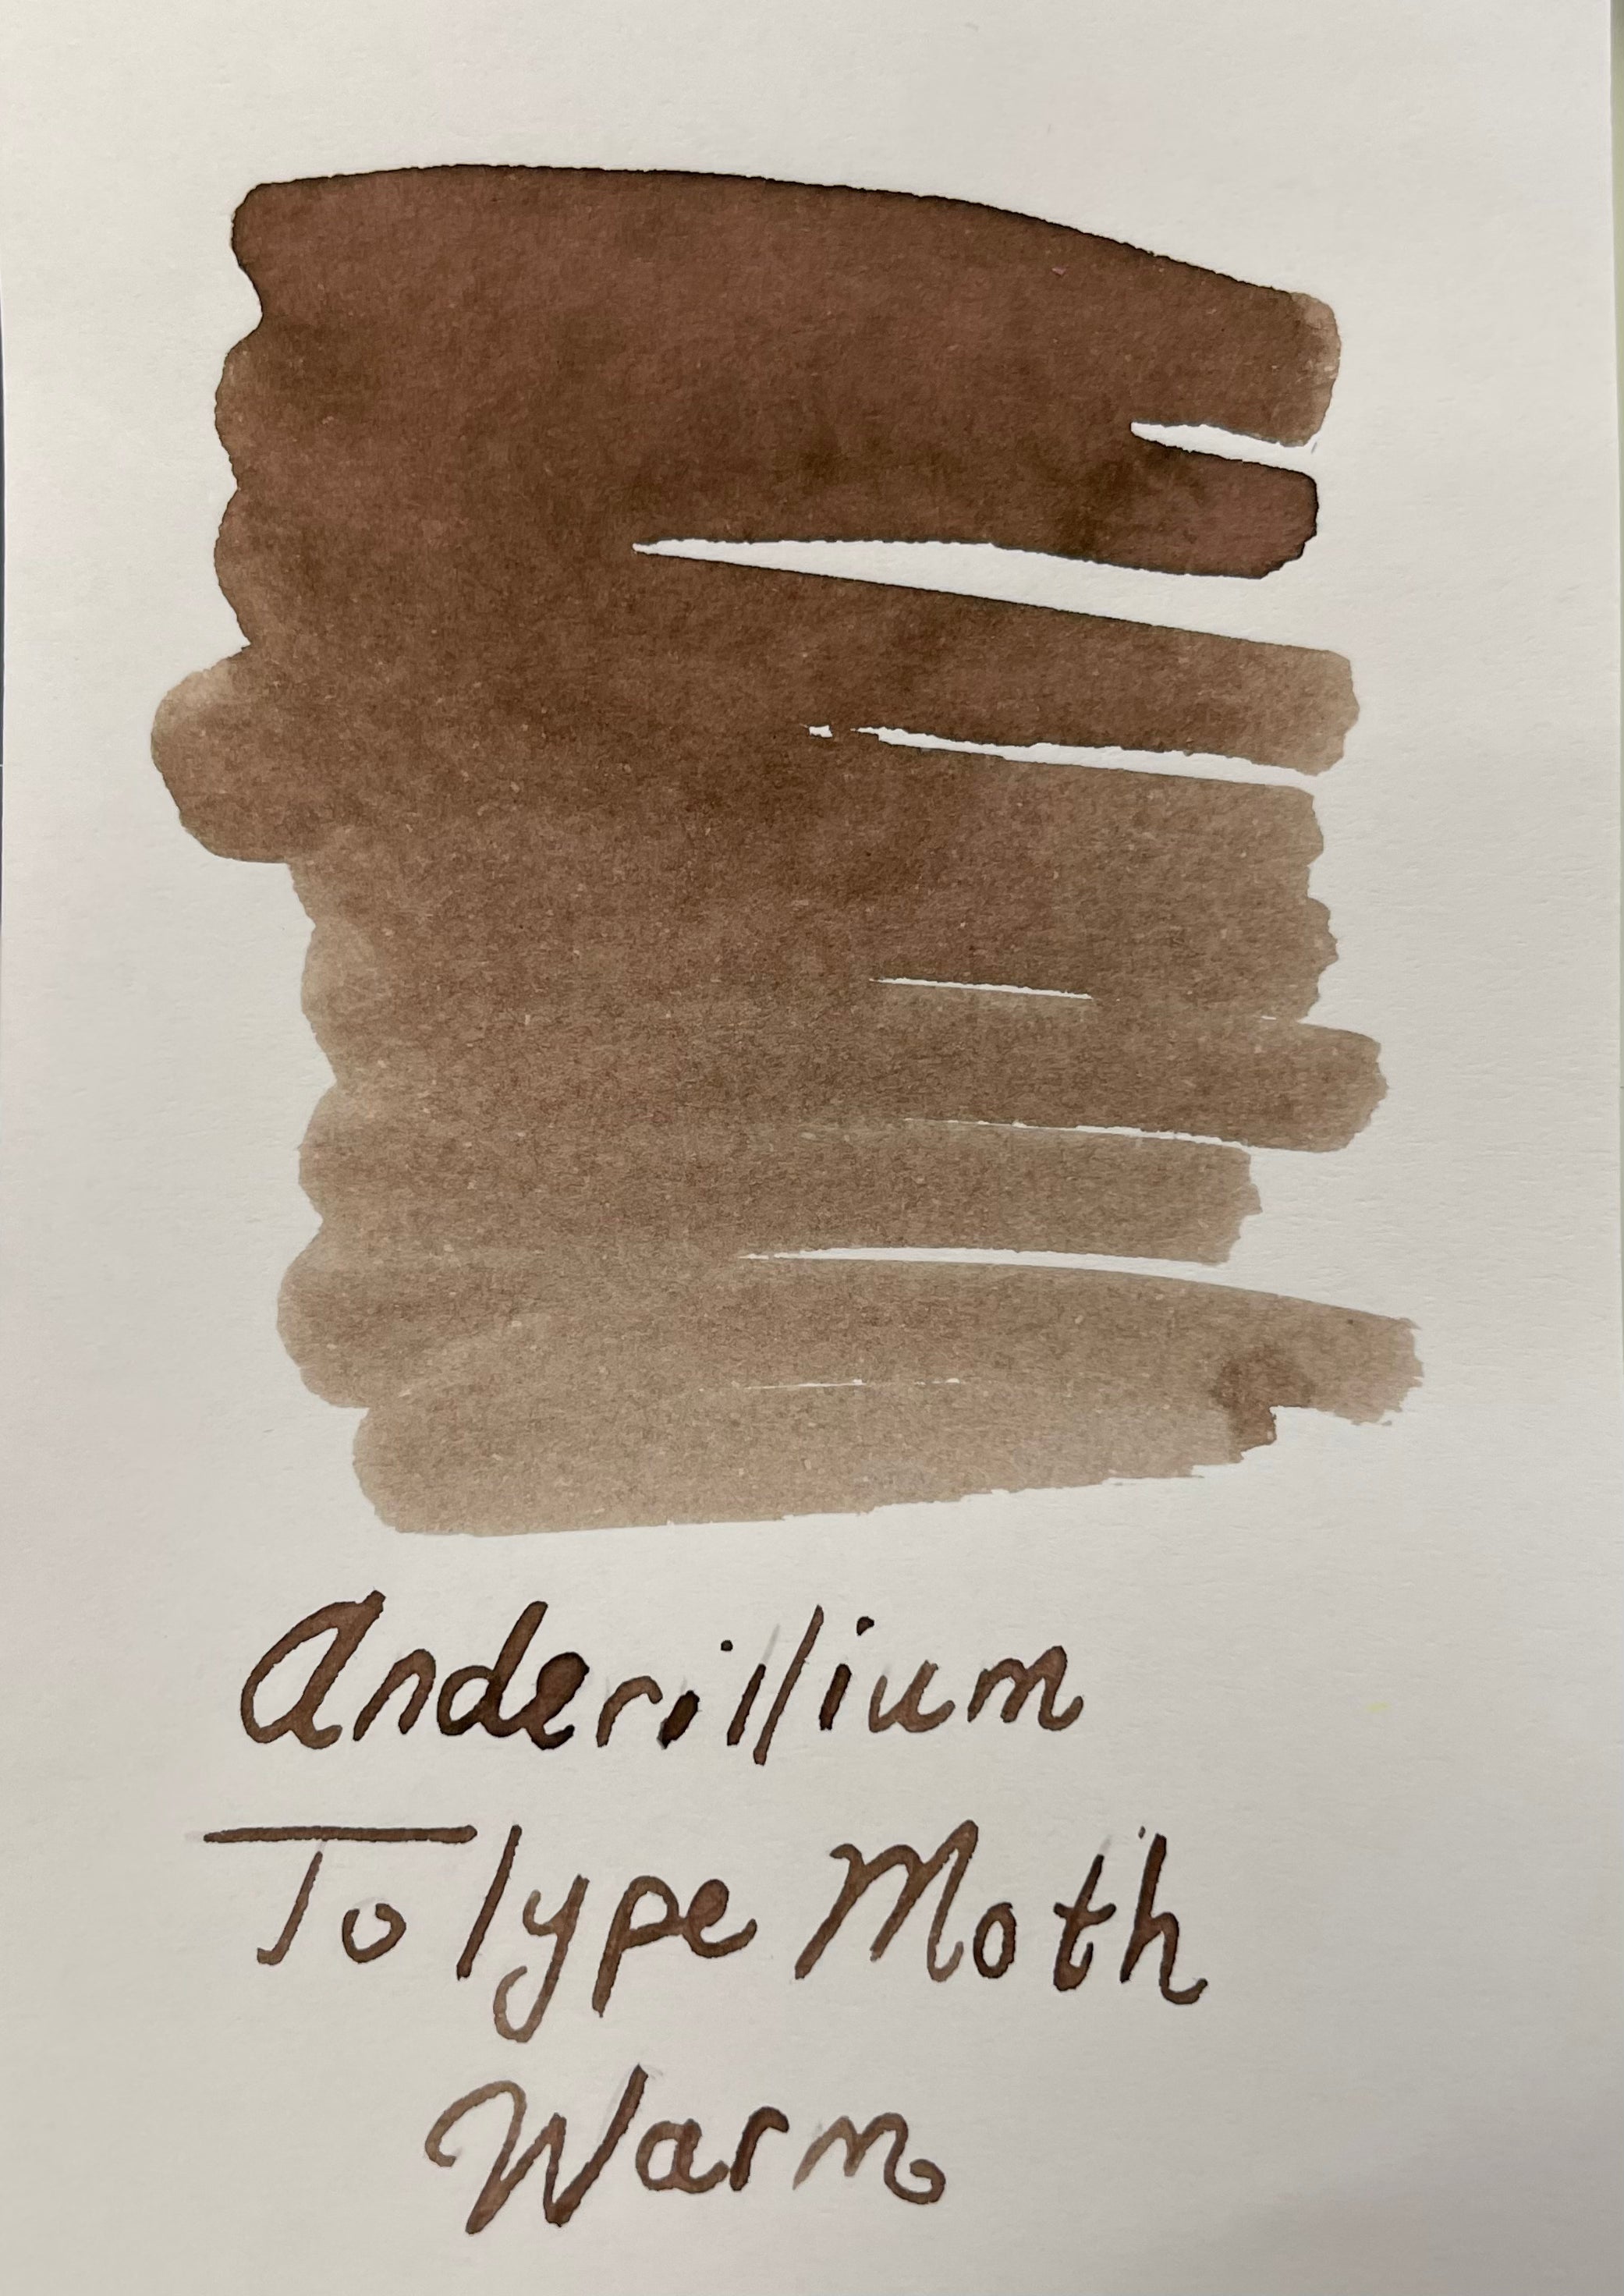 Anderillium
Tolype Moth
Warm